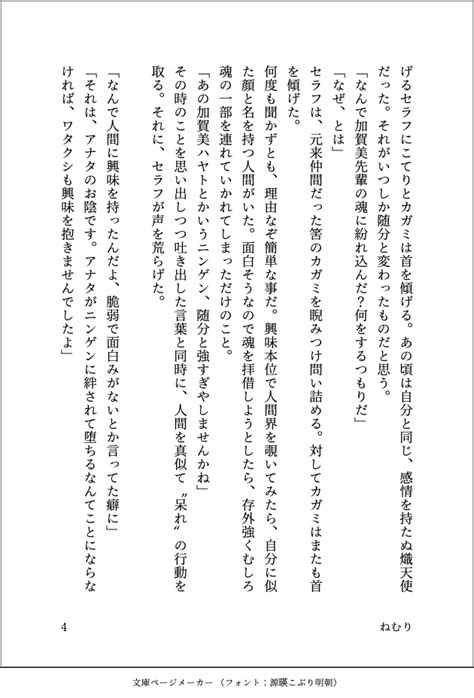 げるセラフにこてりとカガミは首を傾げる。あの頃は自分と同じ、感情を持たぬ熾天使
だった。それがいつしか随分と変わったものだと思う。
「なんで加賀美先輩の魂に紛れ込んだ?何をするつもりだ」
「なぜ、とは」
セラフは、元来仲間だった筈のカガミを睨みつけ問い詰める。対してカガミはまたも首
を傾げた。
何度も聞かずとも、理由なぞ簡単な事だ。興味本位で人間界を覗いてみたら、自分に似
た顔と名を持つ人間がいた。面白そうなので魂を拝借しようとしたら、存外強くむしろ
魂の一部を連れていかれてしまっただけのこと。
「あの加賀美ハヤトとかいうニンゲン、随分と強すぎやしませんかね」
その時のことを思い出しつつ吐き出した言葉と同時に、人間を真似て〝呆れ〟の行動を
取る。それに、セラフが声を荒らげた。
「なんで人間に興味を持ったんだよ、脆弱で面白みがないとか言ってた癖に」
「それは、アナタのお陰です。アナタがニンゲンに絆されて堕ちるなんてことにならな
ければ、ワタクシも興味を抱きませんでしたよ」
4
ねむり
文庫ページメーカー（フォント：源暎こぶり明朝）